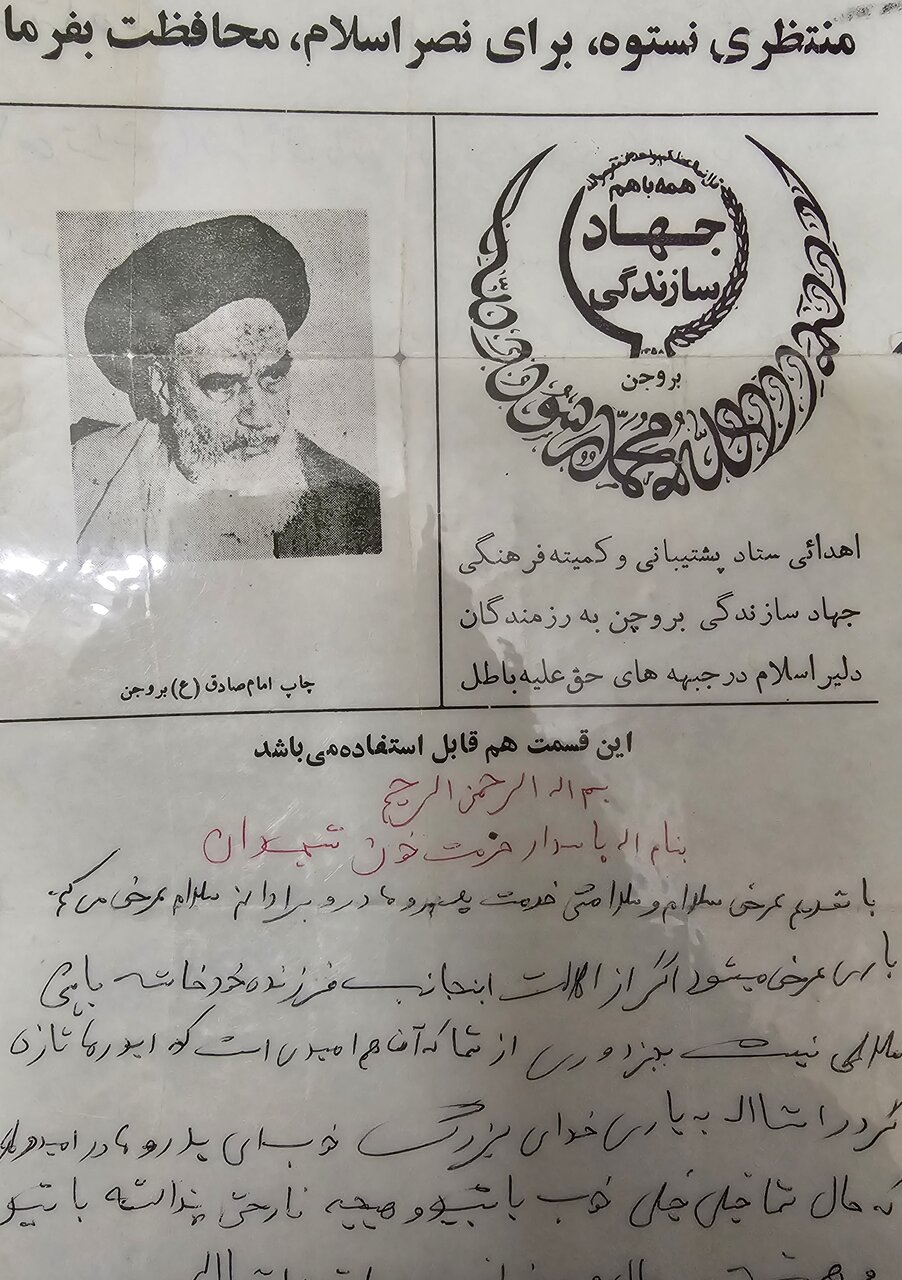 منتظری نستوه، برای نصر اسلام، محافظت بفرما
همه باهم
جهاد
سازندگی
۱۳۵۸
بروجن
اهدائی ستاد پشتیبانی و کمیته فرهنگی
جهاد سازندگی بروجن به رزمندگان
دلیر اسلام در جبهه های حق علیه باطل
چاپ امام صادق (ع) بروجن
این قسمت هم قابل استفاده می باشد
بسم اله الرحمن الرحیم
بنام اله پاسدار حرمت خون شهیدان
با تقدیم عرض سلام و سلامتی خدمت پدر و مادر و برادانم سلام عرض می کنم.
باری عرض میشود اگر از احوالات اینجانب فرزنده خود خواسته باشی
سلامتی نیست بجز دوری از شما که آن هم امیدی است که دیدارها تازی
گردد انشااله به یاری خدای بزرگ خوب ای پدر و مادر امیدوارم
که حال شما خیلی خیلی خوب باشید و هیچه نارحتی نداشته باشید